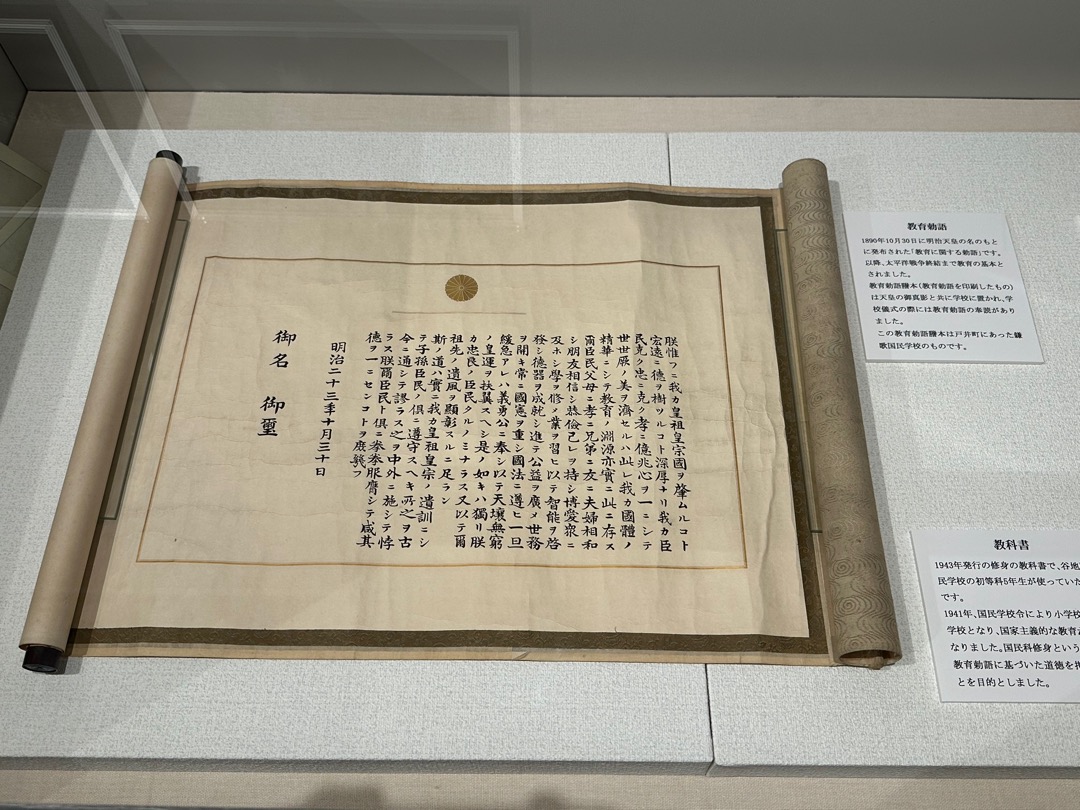 朕惟フニ我カ皇祖皇宗國ヲ肇ムルコト
宏遠ニ德ヲ樹ツルコト深厚ナリ我カ臣
民克ク忠ニ克ク孝ニ億兆心ヲ一ニシテ
世世厥ノ美ヲ濟セルハ此レ我カ國體ノ
精華ニシテ教育ノ淵源亦實ニ此ニ存ス
爾臣民父母ニ孝ニ兄弟ニ友ニ夫婦相和
シ朋友相信シ恭儉己レヲ持シ博愛衆ニ
及ホシ學ヲ修メ業ヲ習ヒ以テ智能ヲ啓
發シ德器ヲ成就シ進テ公益ヲ廣メ世務
ヲ開キ常ニ國憲ヲ重シ國法ニ遵ヒ一旦
緩急アレハ義勇公ニ奉シ以テ天壤無窮
ノ皇運ヲ扶翼スヘシ是ノ如キハ獨リ朕
カ忠良ノ臣民タルノミナラス又以テ爾
祖先ノ遺風ヲ顯彰スルニ足ラン
斯ノ道ハ實ニ我カ皇祖皇宗ノ遺訓ニシ
テ子孫臣民ノ俱ニ遵守スヘキ所之ヲ古
今ニ通シテ謬ラス之ヲ中外ニ施シテ悖
ラス朕爾臣民ト俱ニ拳拳服膺シテ咸其
德ヲ一ニセンコトヲ庶幾フ
明治二十三年十月三十日
御名 御璽
教育勅語
1890年10月30日に明治天皇の名のもと
に発布された「教育に関する勅語」です。
以降、太平洋戦争終結まで教育の基本と
されました。
教育勅語謄本(教育勅語を印刷したもの)
は天皇の御真影と共に学校に置かれ、学
校儀式の際には教育勅語の奉読があり
ました。
この教育勅語謄本は戸井町にあった鎌
歌国民学校のものです。
教科書
1943年発行の修身の教科書で、谷地
民学校の初等科5年生が使ってい
です。
1941年、国民学校令により小学校
学校となり、国家主義的な教育
なりました。国民科修身という
教育勅語に基づいた道徳を
とを目的としました。